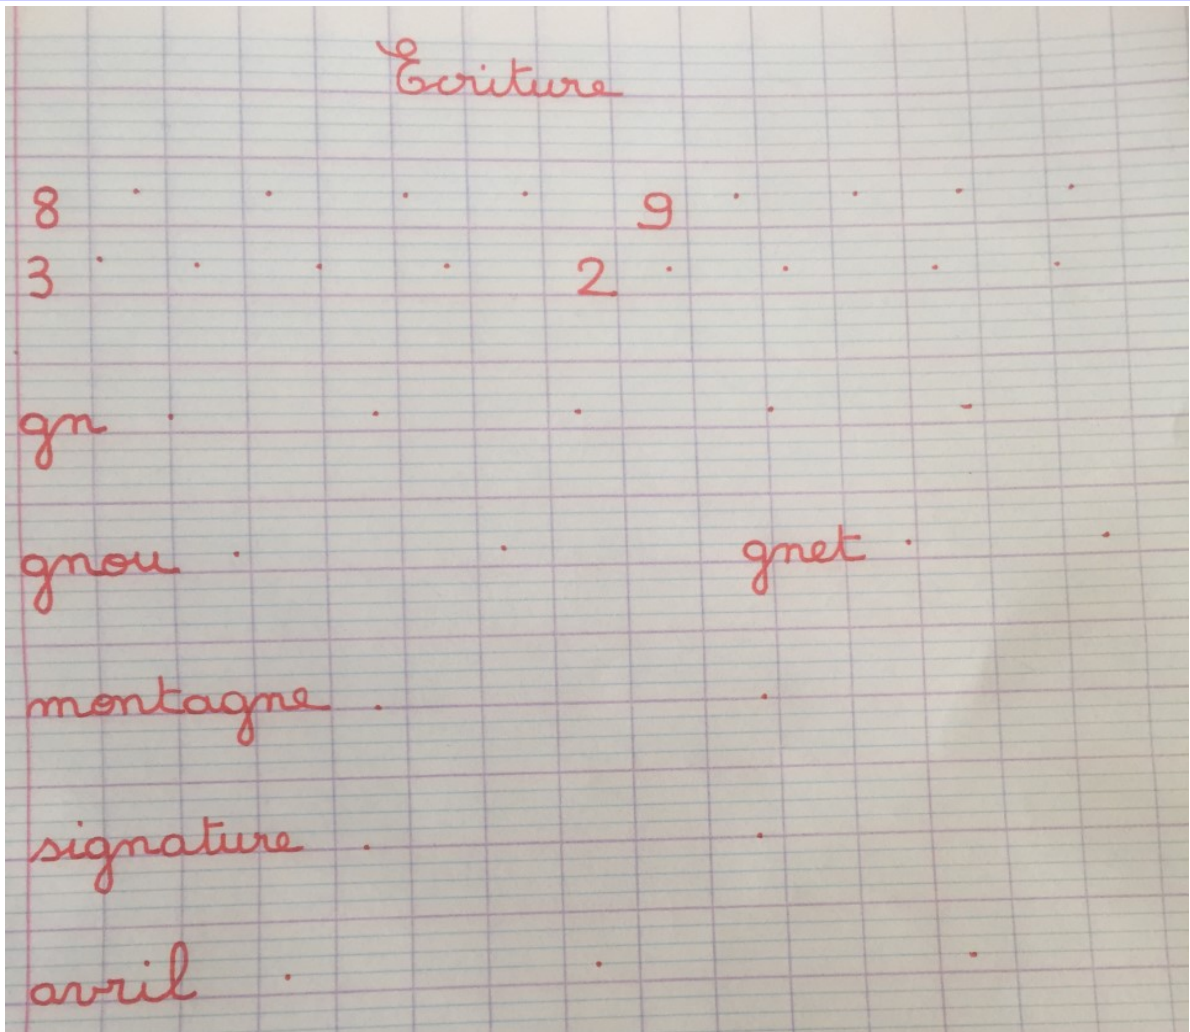 Ecriture
8 . . . . 9 . . . .
3 . . . . 2 . . . .
gn . . . . .
gnou . . gnet . .
montagne . .
signature . .
avril . . .